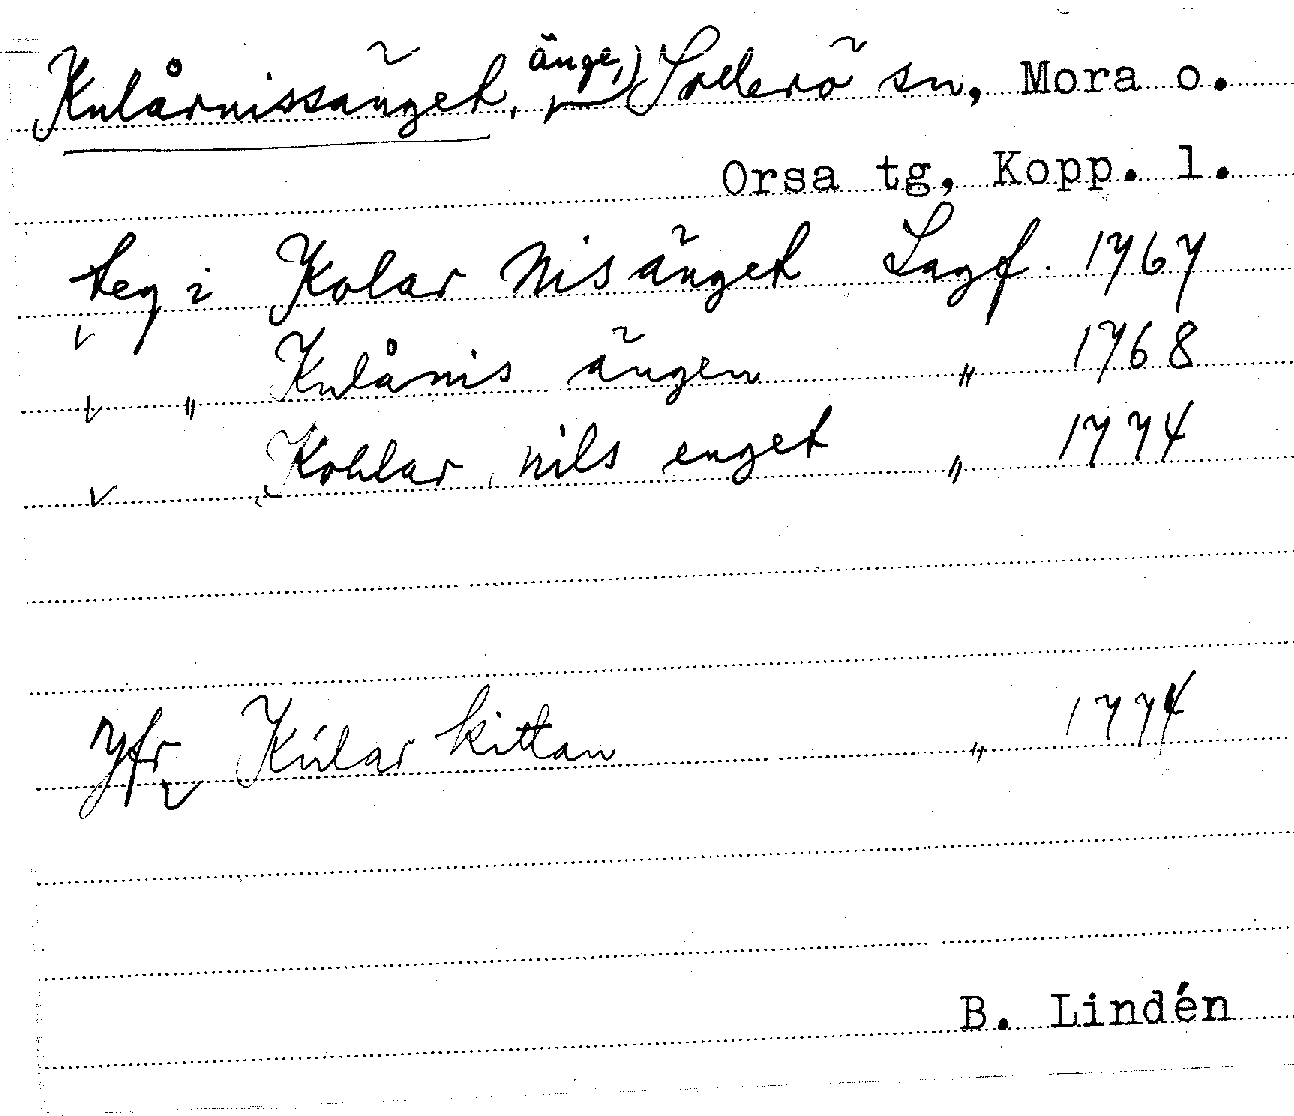 Kulårnissänget, änge, Sollerö sn, Mora o.
Orsa tg, Kopp. l.
teg i Kolar Nis änget Lagf. 1767
" Kulånis ängen " 1768
Kohlar nils enget " 1774
Jfr Kúlar kittan " 1774
B. Lindén